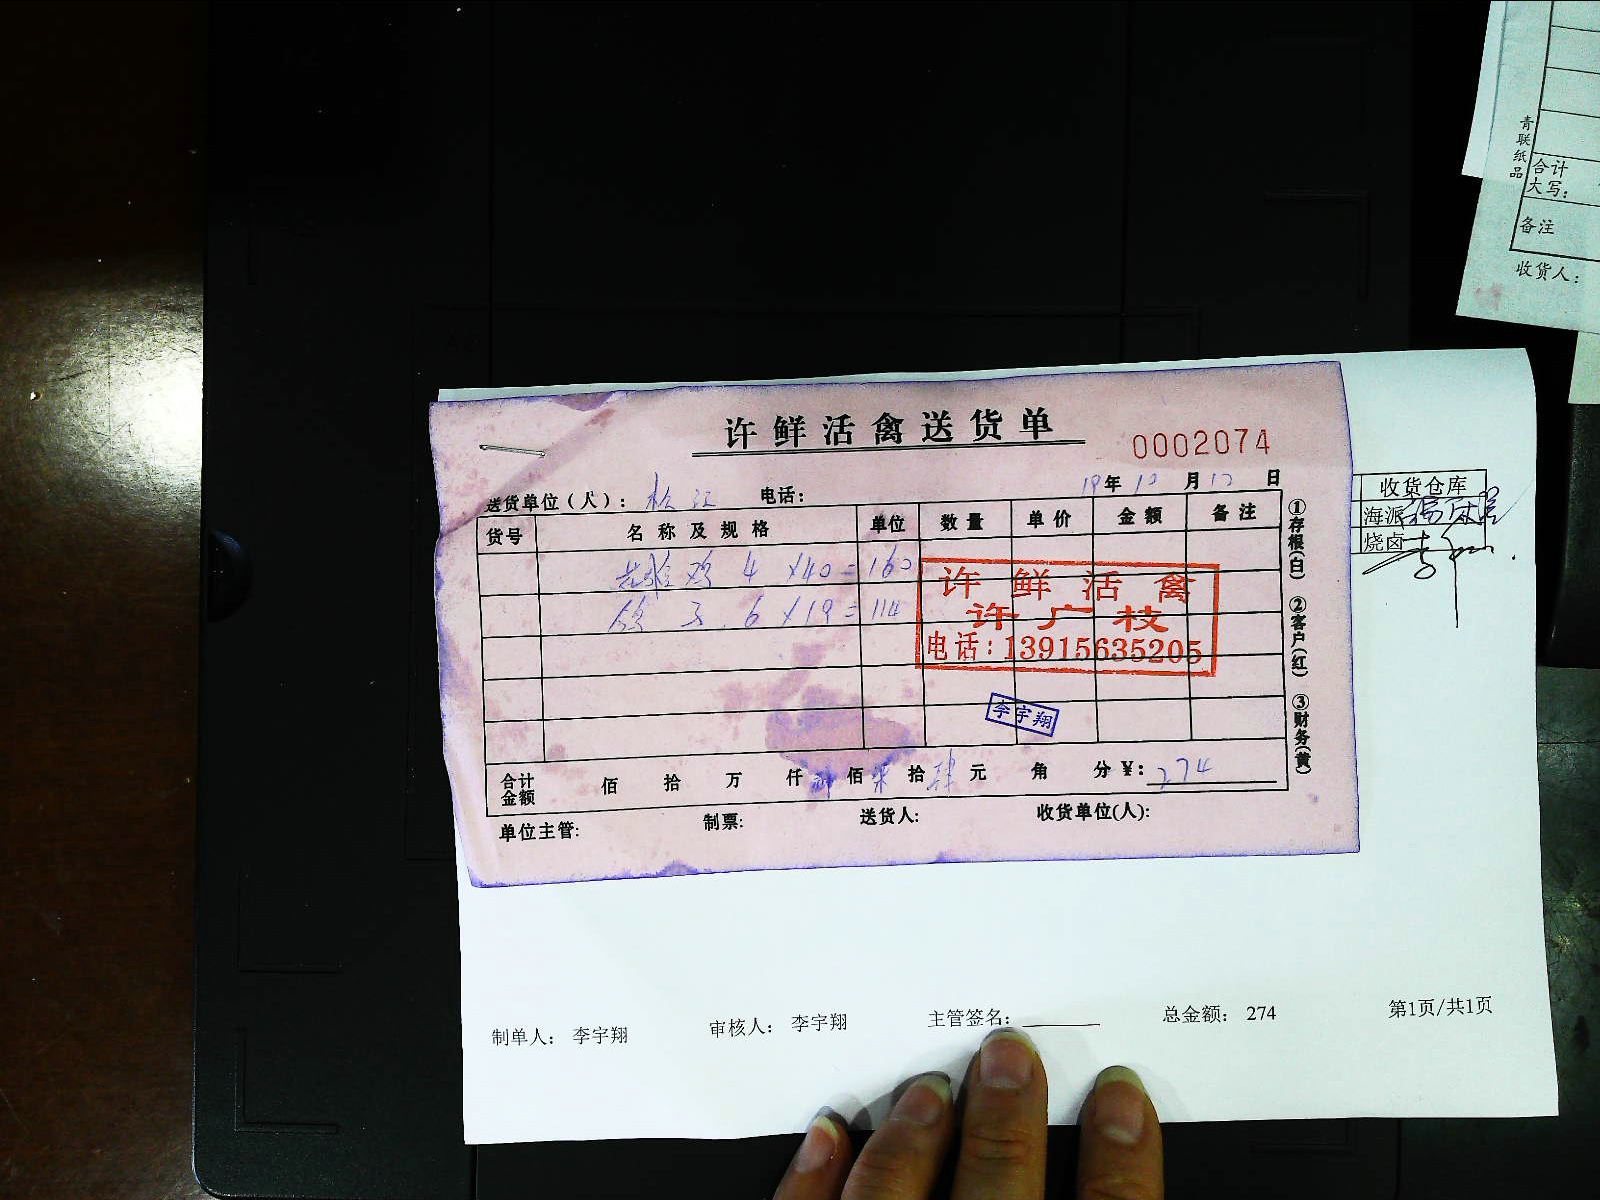 许鲜活禽送货单
0002074
送货单位(人): 松江 电话: 19年10月17日
货号 名称及规格 单位 数量 单价 金额 备注
鸡 4 ×40=160
鸽子 6 ×19=114
许鲜活禽
许广枝
电话:13915635205
李宇翔
合计金额 佰 拾 万 仟 贰佰柒拾肆元 角 分 ¥: 274
单位主管: 制票: 送货人: 收货单位(人):
①存根(白) ②客户(红) ③财务(黄)
收货仓库
海派
烧卤
制单人: 李宇翔 审核人: 李宇翔 主管签名: 总金额: 274 第1页/共1页
青联纸品
合计
大写:
备注
收货人: